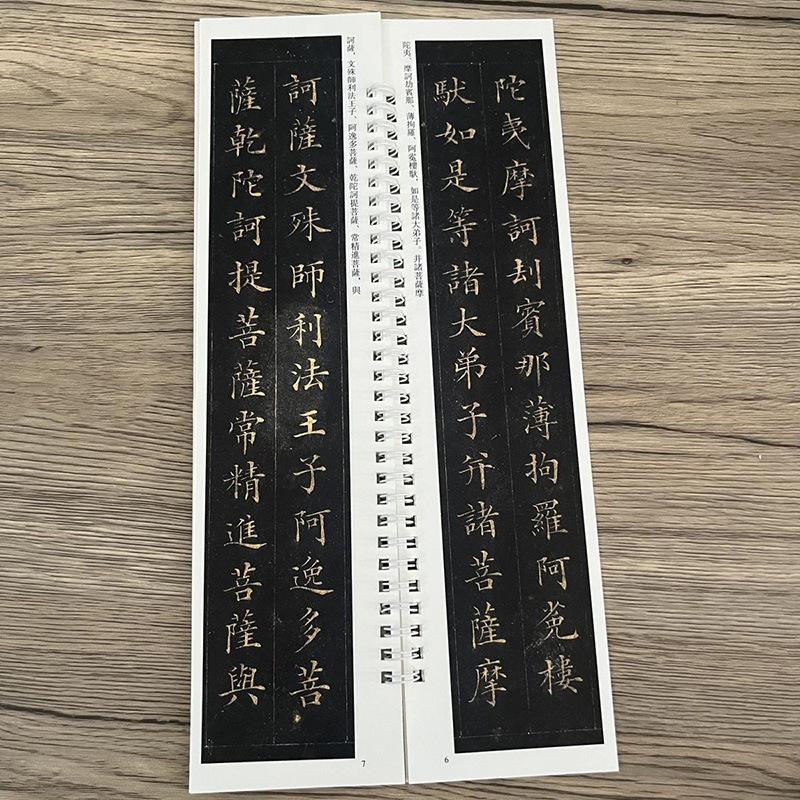 陀夷、摩訶劫賓那、薄拘羅、阿㝹樓馱,如是等諸大弟子。并諸菩薩摩
陀夷摩訶刦賓那薄拘羅阿㝹樓
馱如是等諸大弟子并諸菩薩摩
6
訶薩,文殊師利法王子、阿逸多菩薩、乾陀訶提菩薩、常精進菩薩,與
訶薩文殊師利法王子阿逸多菩
薩乾陀訶提菩薩常精進菩薩與
7